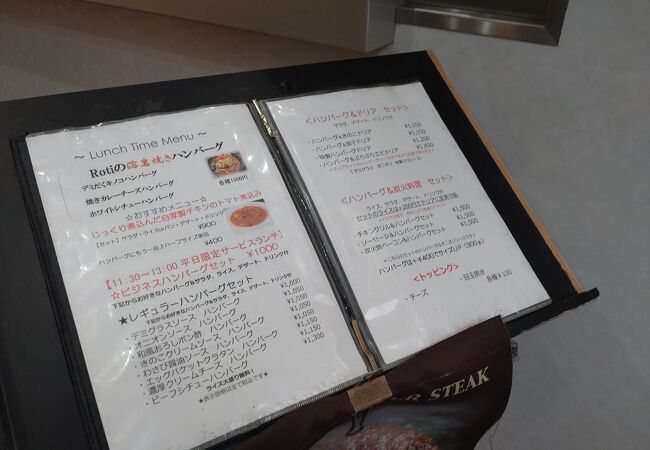 ～ Lunch Time Menu ～
Rotiの溶岩焼きハンバーグ
デミだくキノコハンバーグ
焼きカレーチーズハンバーグ
ホワイトシチューハンバーグ
各種1500円
☆おすすめメニュー☆
じっくり煮込んだ自家製チキンのトマト煮込み
【セット】サラダ・ライスorパン・デザート・ドリンク付
¥900
ハンバーグにもう一品♪ハーフサイズ単品
¥400
【11:30～13:00 平日限定サービスランチ】
☆ビジネスハンバーグセット ¥1000
下記からお好きなハンバーグ&サラダ、ライス、デザート、ドリンク付
★レギュラーハンバーグセット
下記からお好きなハンバーグ&サラダ、ライス、デザート、ドリンク付
・デミグラスソース ハンバーグ ¥1,000
・オニオンソース ハンバーグ ¥1,050
・和風おろしポン酢 ハンバーグ ¥1,050
・きのこクリームソース ハンバーグ ¥1,100
・わさび醤油ソース ハンバーグ ¥1,050
・エッグバケットグラタン ハンバーグ ¥1,150
・濃厚クリームチーズ ハンバーグ ¥1,150
・ビーフシチューハンバーグ ¥1,300
ライス大盛り無料！
★表示価格は全て税込です★
＜ハンバーグ&ドリア セット＞
サラダ、デザート、ドリンク付
・ハンバーグ&きのこドリア ¥1,150
・ハンバーグ&茄子ドリア ¥1,150
・特製ハンバーグドリア ¥1,250
・ハンバーグ&ぷりぷりエビドリア ¥1,400
＜ハンバーグ&炭火料理 セット＞
ライス、サラダ、デザート、ドリンク付
セットのライスは+200円でドリアに変更可能
・チキングリル&ハンバーグセット ¥1,500
・ソーセージ&ハンバーグセット ¥1,500
・炭火焼ベーコン&ハンバーグセット ¥1,500
＊こちらのセットのハンバーグはオニオンソースです＊
ハンバーグは+¥400でサイズUP（300g）
＜トッピング＞
・チーズ ・目玉焼き 各種¥100
STEAK